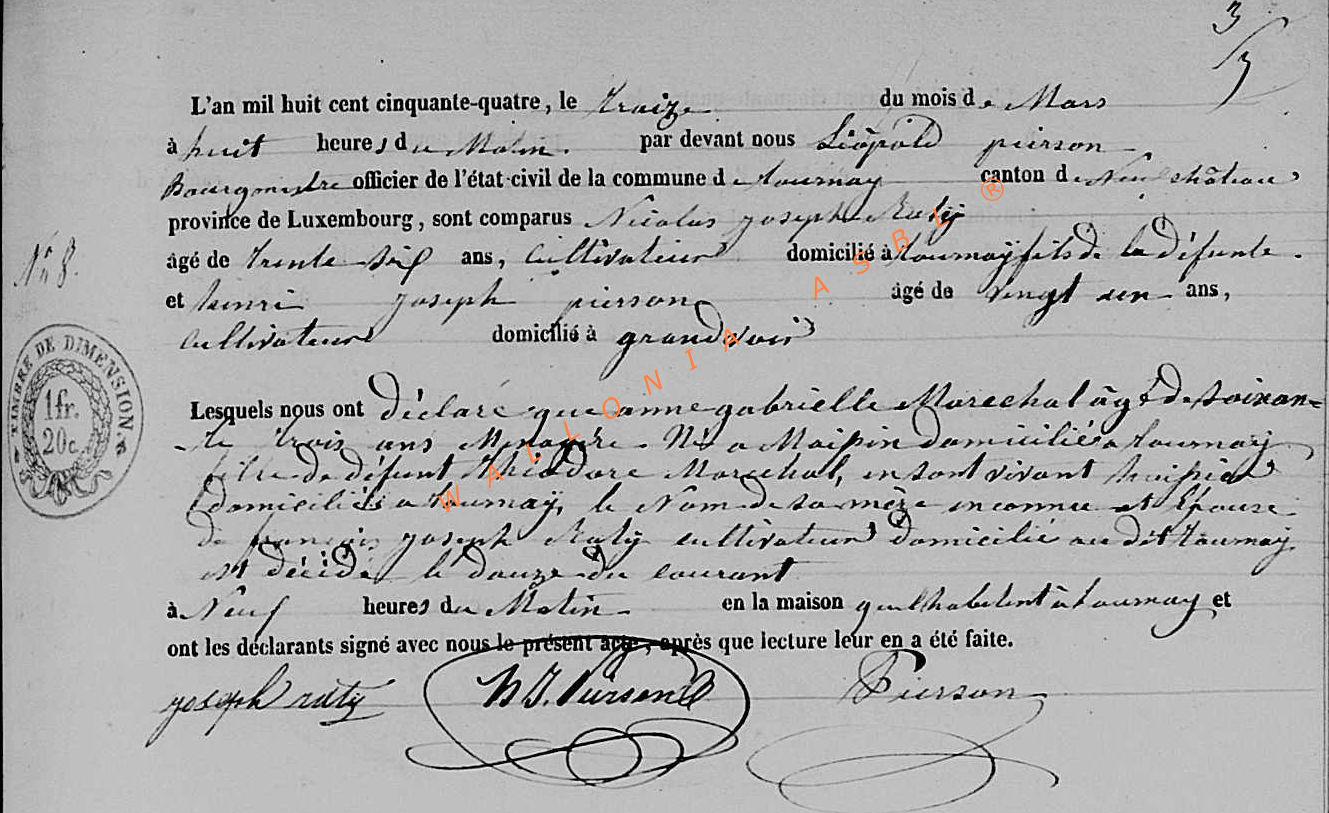 3
3
L'an mil huit cent cinquante-quatre, le treize du mois de Mars
à huit heures du Matin. par devant nous Léopold pierson
Bourgmestre officier de l'état-civil de la commune de tournay canton de Neufchâteau
province de Luxembourg, sont comparus Nicolas joseph Raty
âgé de trente six ans, Cultivateur domicilié à tournay fils de la défunte.
et henri joseph pierson âgé de vingt un ans,
cultivateur domicilié à grandvoir
N° 8.
TIMBRE DE DIMENSION
1 fr.
20 c.
Lesquels nous ont déclaré que anne gabrielle Marechal âgé de soixan=
te trois ans Menagère Né a Maipin domicilié a tournay
fille de défunt théodore Marechal, en sont vivant huipier
domiciliés a tournay, le Nom de sa mère inconnu et Epouse
de françois joseph Raty cultivateur domicilié au dit tournay
est décidé le douze du courant
à Neuf heures du Matin en la maison quil habitent à tournay et
ont les déclarants signé avec nous le présent acte, après que lecture leur en a été faite.
joseph raty H J. Pierson Pierson
WALLONIA ASBL ®